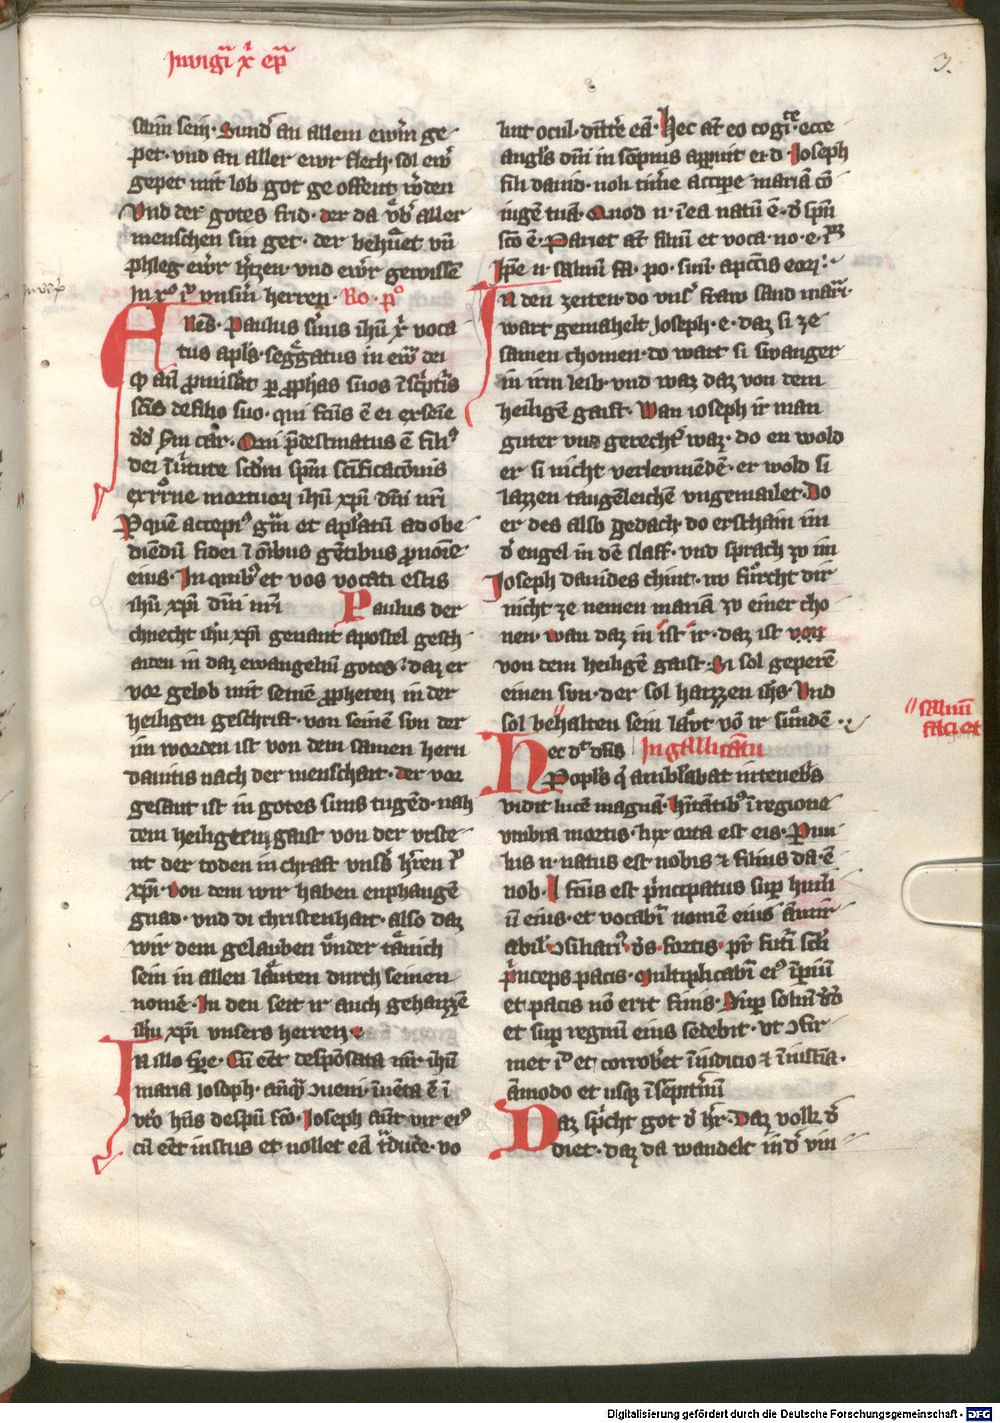 In vigił xͥ epła
3.
sam sein. Sunder an allem ewerm ge
pet. vnd an aller ewr flech. sol ewer
gepet mit lob got ge offent werden
Vnd der gotes frid. der da vͤber aller
menschen sin get. der behuͤet vnd
phleg ewer hertzen. vnd ewer gewissē
In xͦ iͧ vnserm herren. Ro. pͦ
Paulus seruus ihū xͥ voca
tus apłs. segregatus in ewā dei
scīs de filio suo. qui fctūs ē ei ex semīe
dd. scdm car. Qui p̄destinatus ē filiꝰ
dei ī uͥtute scdm spm̄ scīficacōnis
ex resurrectōne mortuoꝝ ihū xp̄i dn̄i nr̄i
P quē accepimꝰ grām et apłatū ad obe
diēdū fidei ī om̄ibus gētibus ꝓ noīe
eius. In quibꝰ et vos vocati estis
ihū xp̄i dn̄i nr̄i Paulus der
chnecht ihū xp̄i genant apostel gesch
aiden in daz ewangeliū gotes. daz er
vor gelob mit seinē ꝓpheten in der
heiligen geschrift. von seinē svn der
im worden ist von dem samen hern
dauitis nach der menschait. der vor
gesant ist in gotes suns tugēd. nah
dem heiligtem gaist von der vrste
nt der toden in chraft vnsers h̄ren iͧ
xp̄i. Von dem wir haben enphangē
gnad. vnd di christenhait. also daz
wir dem gelauben vͤnder taͤnich
sein in allen laͤuten durch seinen
nomē. In den seit ir auch gehaizzē
ihū xp̄i vnsers herren
In illo tp̄re. Cū eēt desponsata mr̄ ihū
maria ioseph. anq̄ ꝯueni. inuēta ē ī
vtͦo hn̄s de spū scō. Ioseph aūt vir eiꝰ
cū eēt iustus et nollet eā tͣduce. vo
luit ocul. dimitte eā. Hec aūt eo cogitāte. ecce
angłs dn̄i in sōpnis appuit ei d. Ioseph
fili dauid. noli timere accipe mariā cō
iugē tuā. Quod n. ī ea natū ē. de spū
scō ē. Pariet aūt filiū et voca. no. e. iħs
Ip̄e n. saluū fa. po. suū. a pctīs eoꝝ.
In den zeiten. do vnser fraw sand mari.
wart gemahelt Joseph. e. daz si ze
samen chomen. do wart si swanger
in irm leib. vnd waz daz von dem
heiligē gaist. Wan ioseph ir man
guter vnd gerechter waz. do en wold
er si nicht verlevmēdē. er wold si
lazzen taugēleichen vngemailet. Do
er des also gedach. do erschain im
der engel in dē slaff. vnd sprach zv im
Joseph dauides chint. nv fuͤrcht dir
nicht ze nemen mariā zv einer cho
nen. wan daz in ist ir. daz ist voir
von dem heiligē gaist. Si sol geperē
einen svn. der sol haizzen ihs. Vnd
sol behalten sein laͤvt vō ir suͤndē.
saluū
faciet
Hec dͭ dn̄s In gallicātu
Popłs q̄ ambłabat in tenebris
vidit lucē magnā. Hītātibꝰ ī regione
vmbra mortis. lux orta est eis. Paru
lus n. natus est nobis ⁊ filius da. ē
nob. I fctūs est pͥncipatus sup humeri
ū eius. et vocabit nomē eius āmir
abil. ꝯsiliariꝰ. ds. fortis. pr̄ futi scłi
pͥnceps pacis. Multiplicabit eiꝰ īpiū
et pacis nō erit finis. Sup soliū dd
et sup regnū eius sedebit. vt ꝯfir
met iͩ et corroboret ī iudicio ⁊ ī iusticia.
āmodo et usqꝫ ī sempitnū
Daz spͥcht got der h̄r. Daz volk der
diet. daz da wandelt in der vin
Digitalisierung gefördert durch die Deutsche Forschungsgemeinschaft - DFG